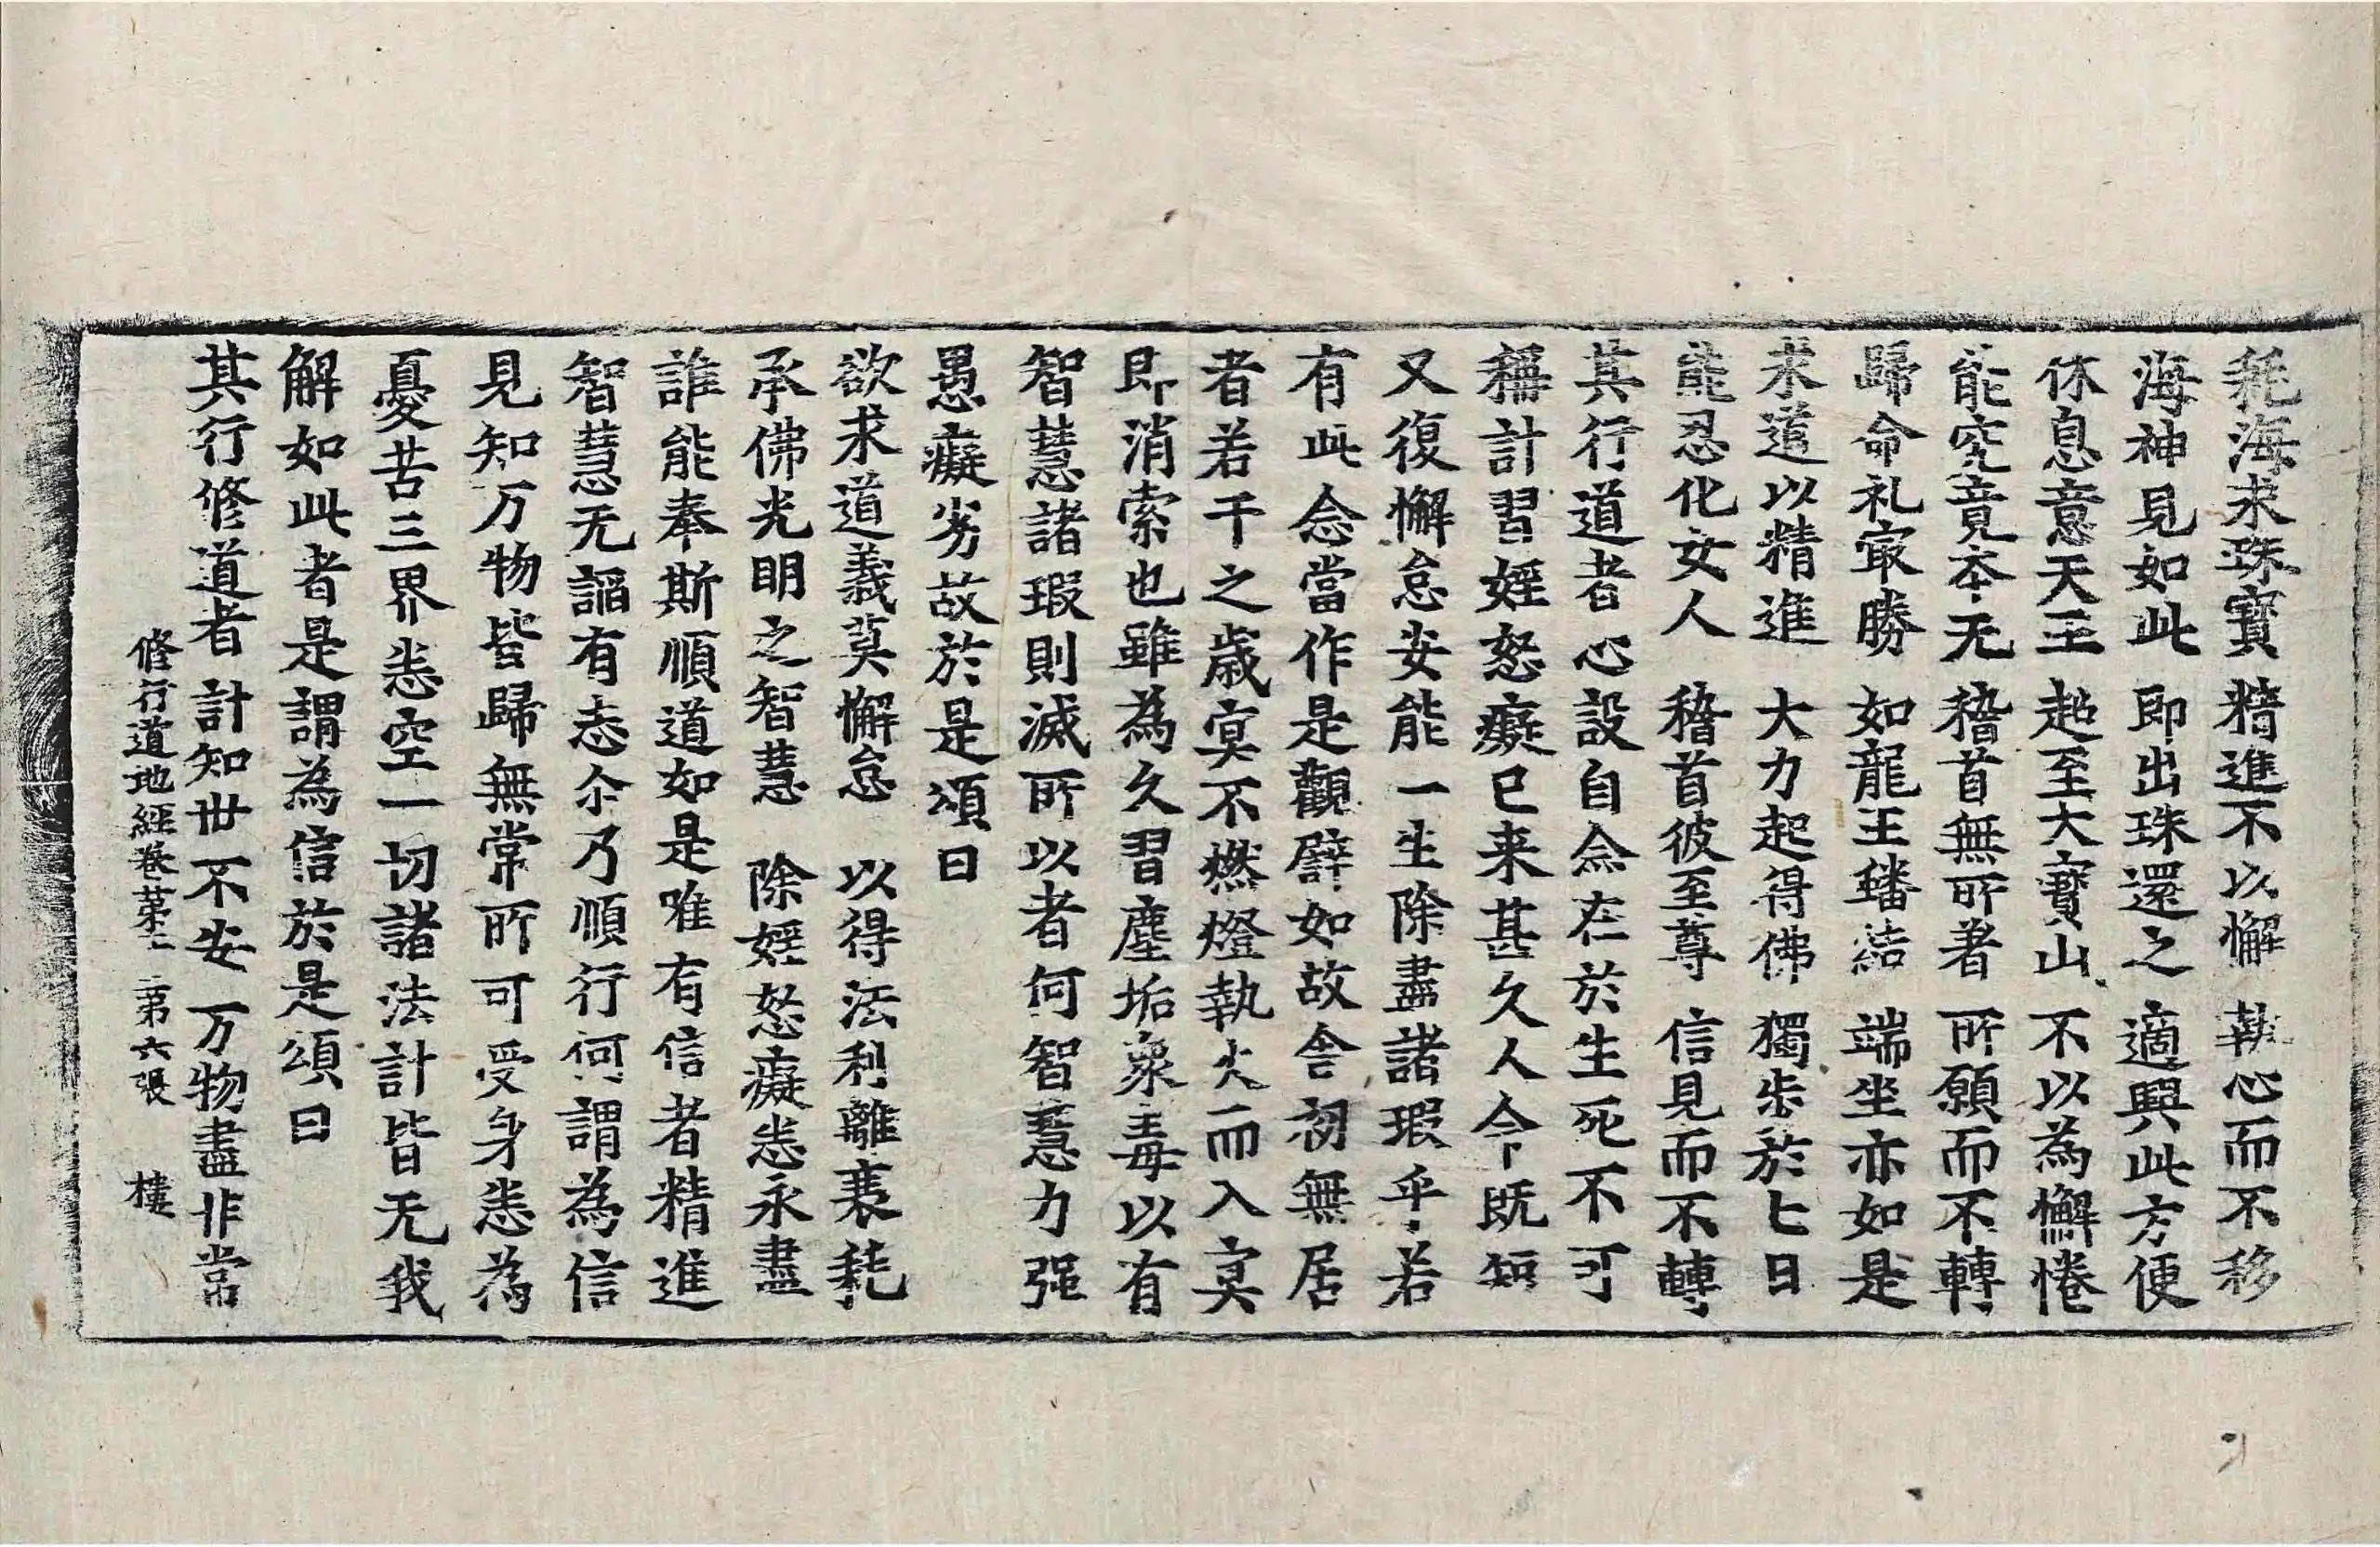 耗海求珠寶　精進不以懈　執心而不移
海神見如此　即出珠還之　適興此方便
休息意天王　超至大寶山　不以為懈惓
能究竟本无　稽首無所著　所願而不轉
歸命礼㝡勝　如龍王蟠結　端坐亦如是
求道以精進　大力起得佛　獨步於七日
能忍化女人　稽首彼至尊　信見而不轉
其行道者心設自念在於生死不可
稱計習婬怒癡已来甚久人今既短
又復懈怠安能一生除盡諸瑕乎若
有此念當作是觀譬如故舍初無居
者若干之歲㝠不燃燈執火而入㝠
即消索也雖為久習塵垢衆毒以有
智慧諸瑕則滅所以者何智慧力强
愚癡劣故於是頌曰
欲求道義莫懈怠　以得法利離衰耗
承佛光明之智慧　除婬怒癡悉永盡
誰能奉斯順道如是唯有信者精進
智慧无謟有志尒乃順行何謂為信
見知万物皆歸無常所可受身悉為
憂苦三界悉空一切諸法計皆无我
解如此者是謂為信於是頌曰
其行修道者　計知世不安　万物盡非常
修行道地經卷苐二　第六張　樓